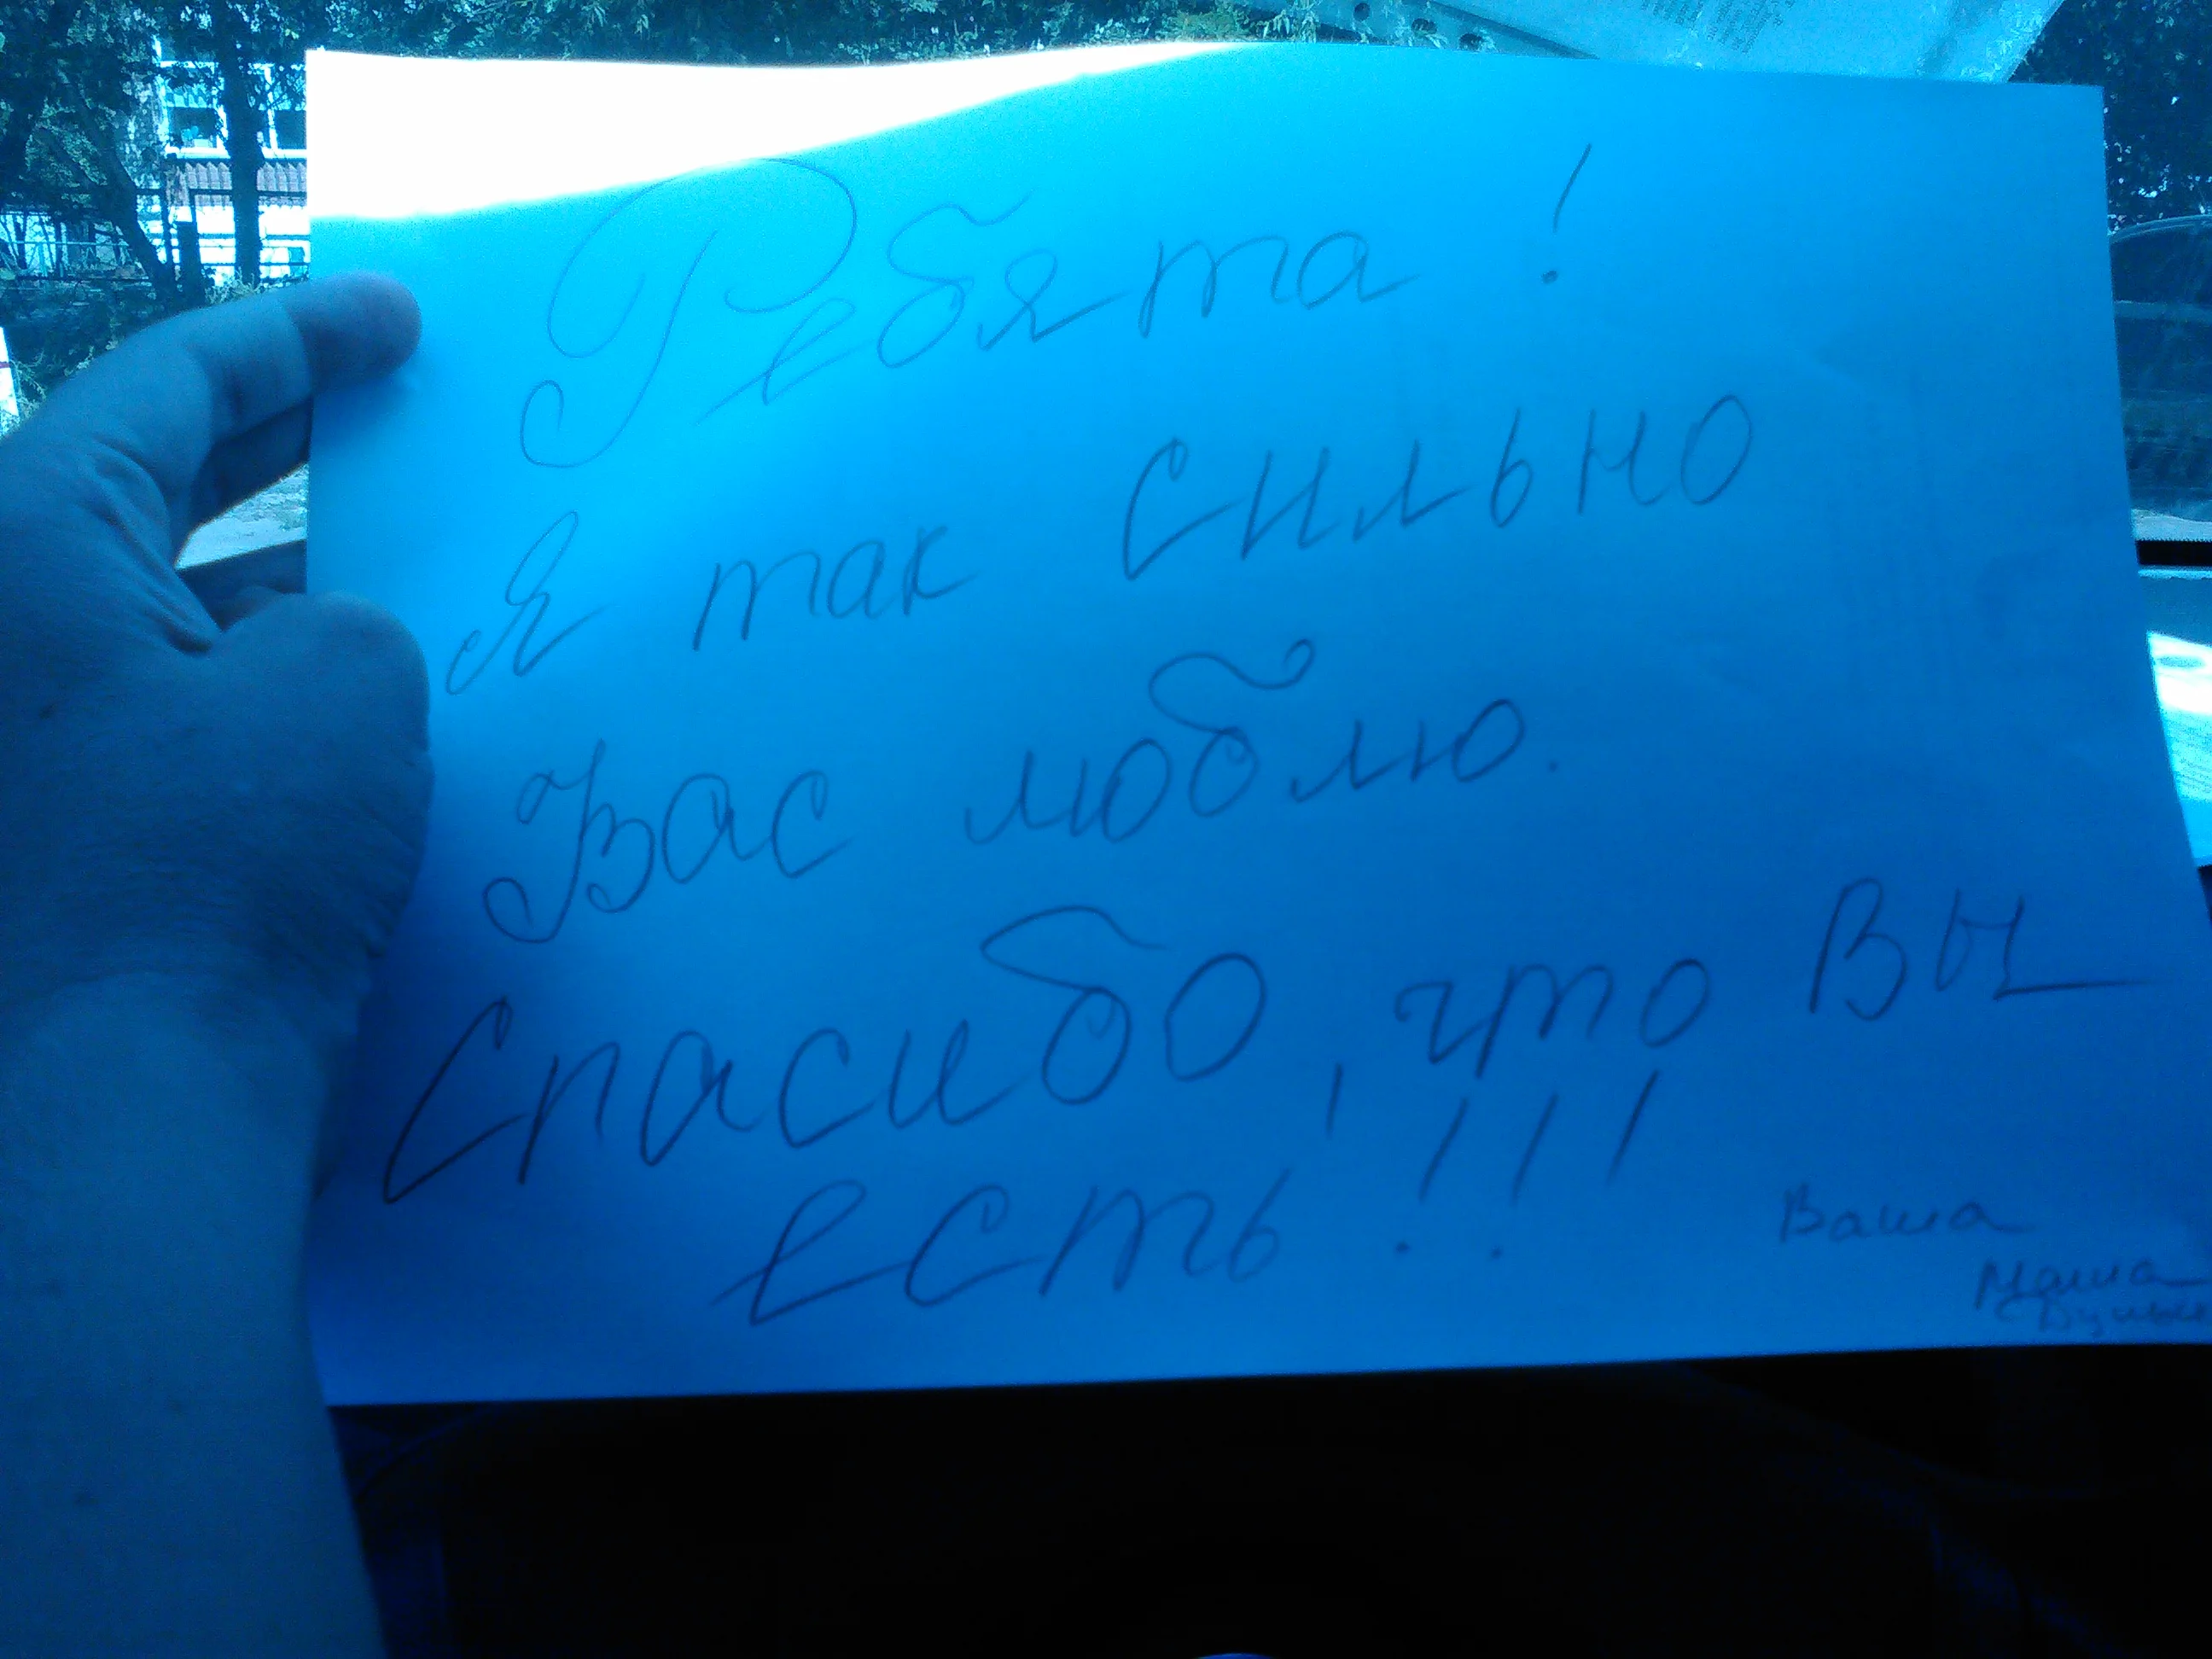 Ребята !
Я так сильно
Вас люблю.
Спасибо, что Вы
есть!!!
Ваша
Маша